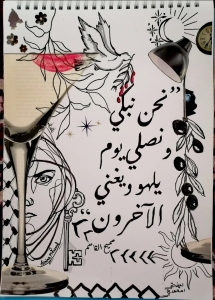 "نحن نبكي
ونصلي يوم
يلهو ويغني
الآخرون"
سميح القاسم